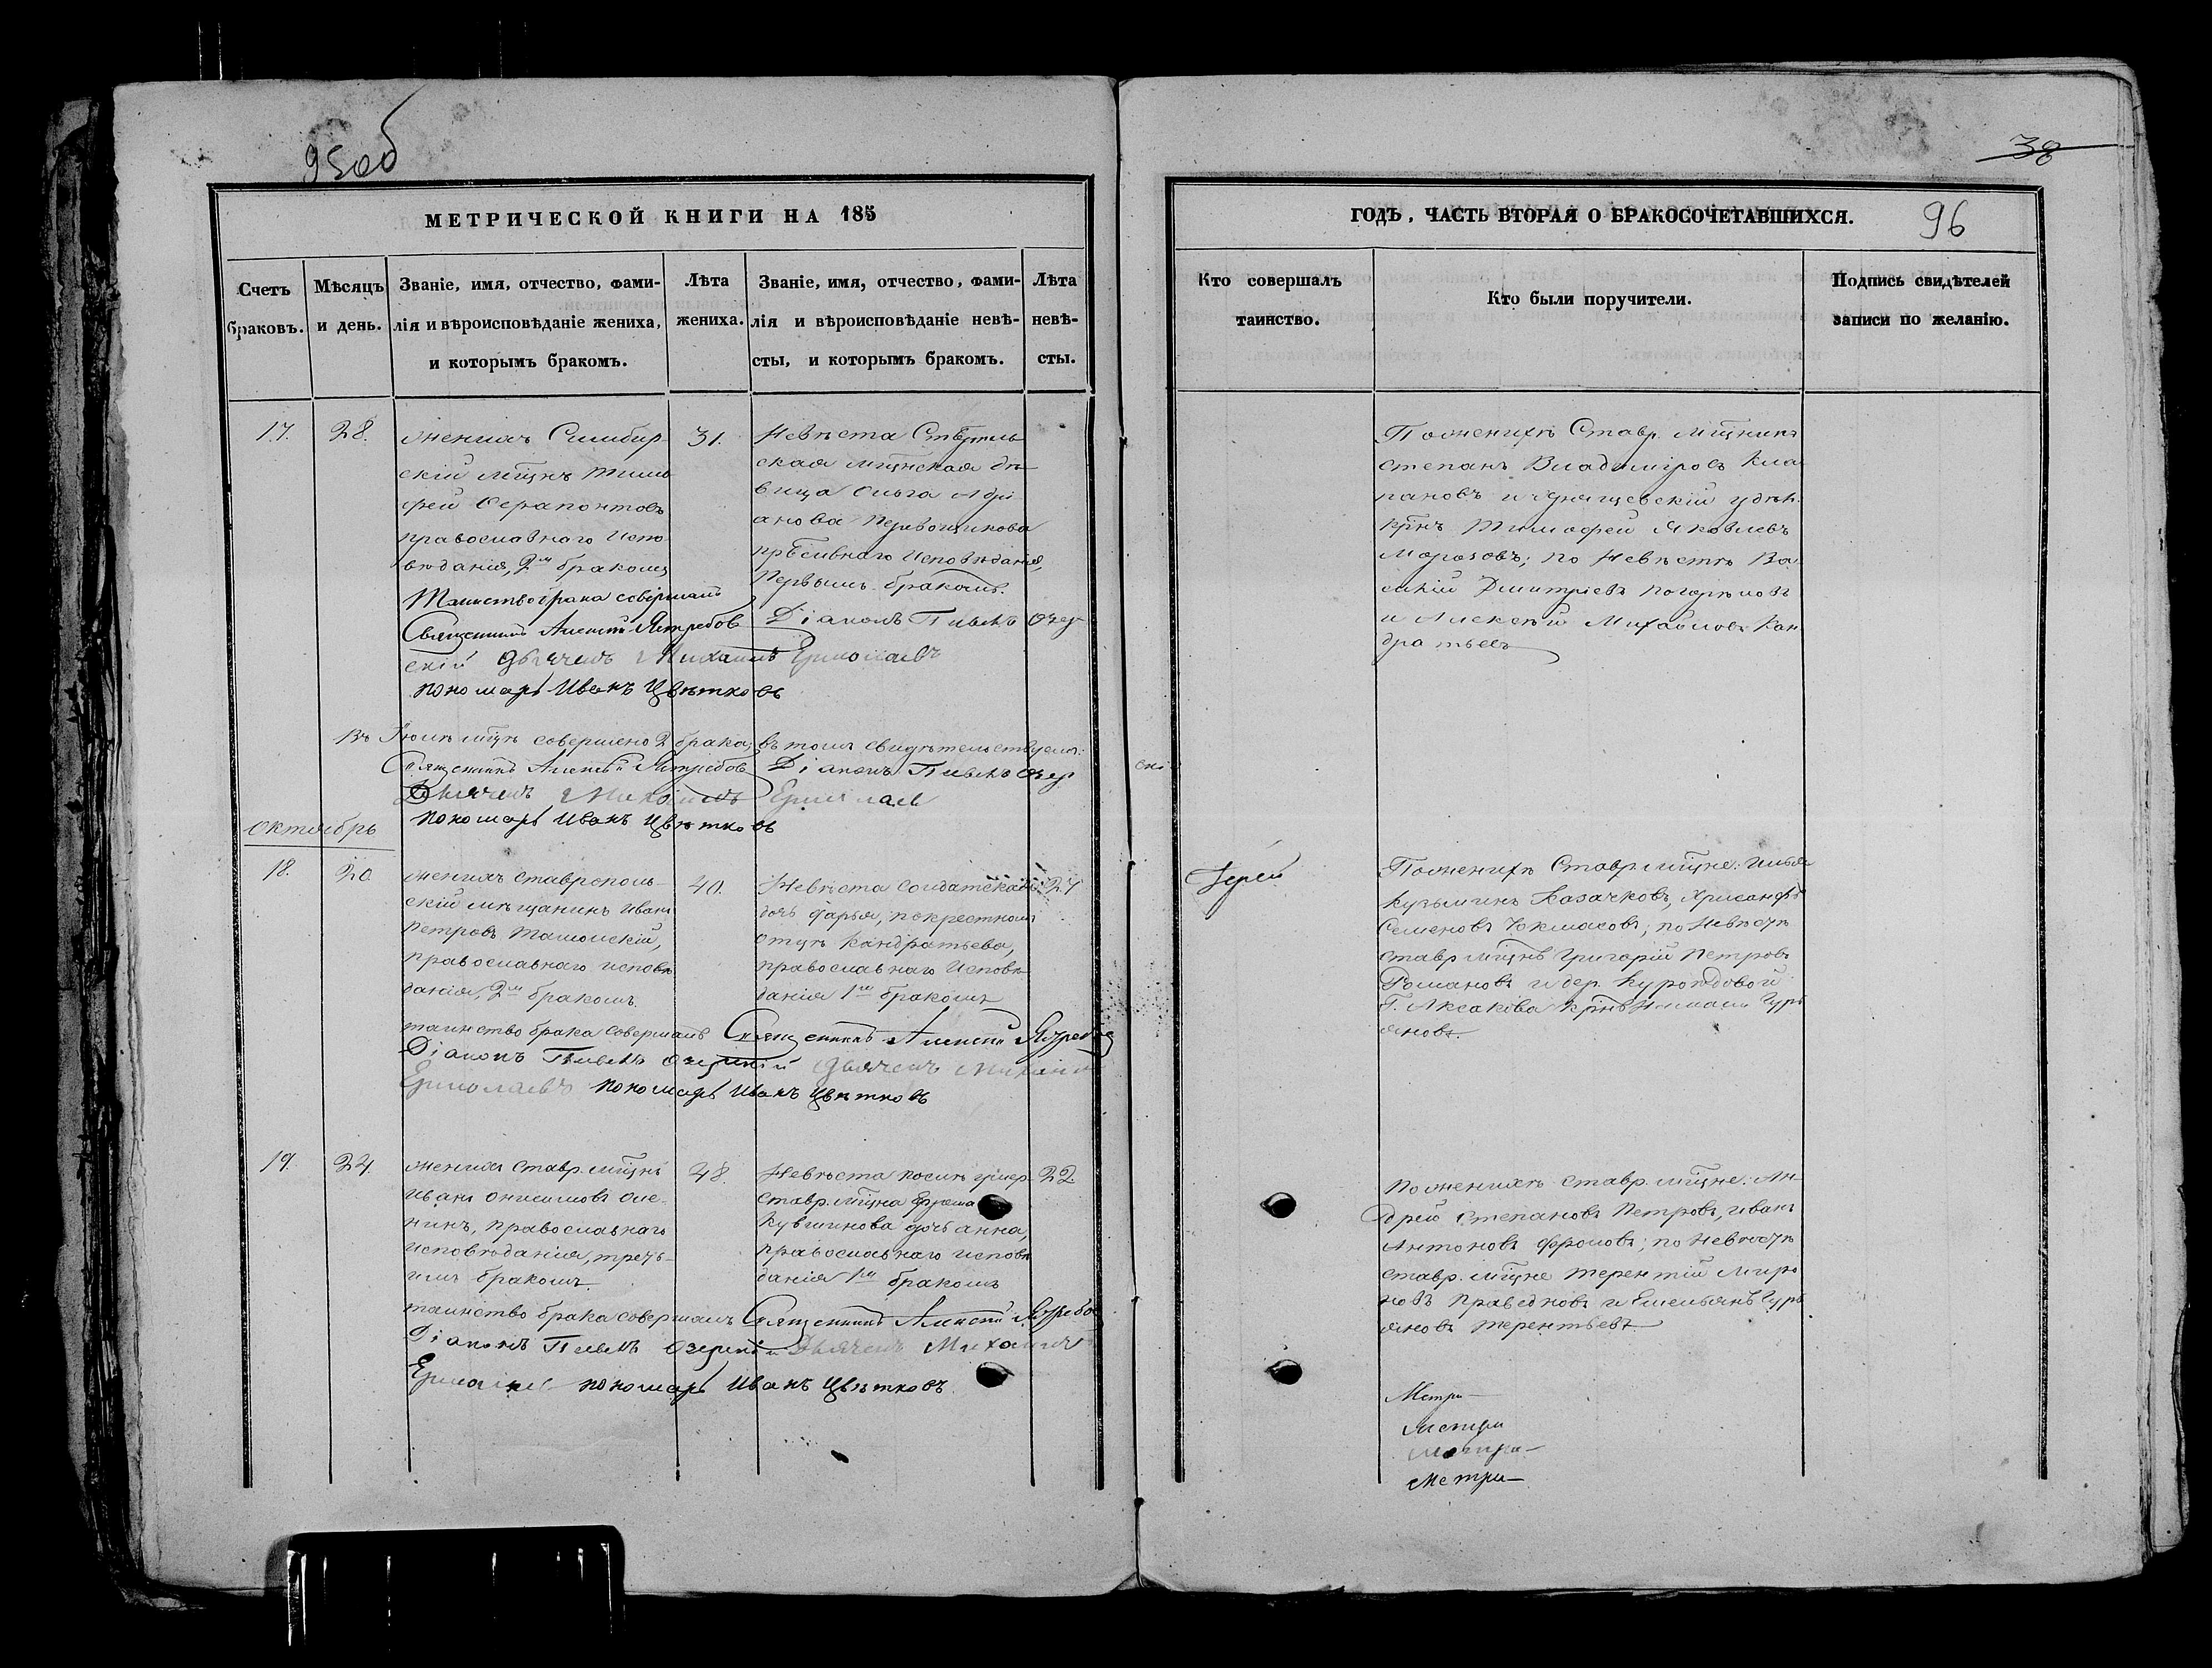 95об
МЕТРИЧЕСКОЙ КНИГИ НА 185
Счетъ браковъ.
Мѣсяцъ и день.
Званіе, имя, отчество, фами-
лія и вѣроисповѣданіе жениха,
и которымъ бракомъ.
Лѣта
жениха.
Званіе, имя, отчество, фами-
лія и вѣроисповѣданіе невѣ-
сты, и которымъ бракомъ.
Лѣта
невѣ-
сты.
17.
28.
женихъ Симбир-
скій мщнъ Тимо
фей Серапонтовъ
православнаго Испо
вѣданія, 2мъ бракомъ
31.
Невѣста Ставрполь
ская мщнская дѣ-
вица Ольга Адрі-
анова Перво
Исповѣданія,
Первымъ бракомъ.
Таинство брака совершалъ
Священникъ Алексій Ястребов
скій Дьячекъ Михаилъ Ермолаевъ
Діаконъ
пономарь Иванъ Цвѣтковъ
Въ Іюлѣ мцѣ совершено 2 брака, въ томъ свидѣтельствуемъ:
Священникъ Алексій Ястребов
Діаконъ
Дьячекъ Михаилъ Ермолаев
пономарь Иванъ Цвѣтковъ
Октябрь
18.
20
женихъ ставрополь-
скій мѣщанинъ Иванъ
Петровъ
православнаго исповѣ
данія, 2мъ бракомъ
40.
Невѣста солдатская
дочь Дарья, по крестному
отцу Кандратьева,
православнаго Исповѣ
данія 1мъ бракомъ
27
таинство брака совершалъ Священникъ Алексій
Діаконъ Дьячекъ Михаилъ
Ермолаевъ пономарь Иванъ Цвѣтковъ
19.
24
женихъ ставр. мщнъ
Иванъ Онисимовъ Оле-
нинъ, православнаго
исповѣданія, треть-
имъ бракомъ
48.
Невѣста
ставр. мщна
Кувшинова дочь анна,
православнаго исповѣ
данія 1мъ бракомъ
22
таинство брака совершалъ Священникъ Алексій
Діаконъ Дьячекъ Михаилъ
Ермолаев пономарь Иванъ Цвѣтковъ
38
ГОДЪ, ЧАСТЬ ВТОРАЯ О БРАКОСОЧЕТАВШИХСЯ.
96
Кто совершалъ
таинство.
Кто были поручители.
Подпись свидѣтелей
записи по желанію.
По женихѣ Ставр. мщнинъ
степанъ Владиміровъ Кла
пановъ и
Крнъ Тимофей Яковлевъ
Морозовъ; по Невѣстѣ Ва
силій Дмитріевъ Погорѣловъ
и Алексѣй Михайловъ Кан
дратьевъ
скі
Іерей
По женихѣ Ставр. мщне: Илья
Кузьминъ Казачковъ, Хрисанфъ
Семеновъ Чокмасовъ; по Невѣстѣ
ставр мщнъ Григорій Петровъ
Романовъ и дер. Куроѣдовой
Г. Аксакова Крнъ Гурь
яновъ.
По женихѣ ставр. мщне: Ан-
дрей Степановъ Петровъ, иванъ
Антоновъ Фроловъ; по невѣстѣ
ставр. мщне Терентій Миро
новъ Праведновъ и Емельянъ Гурь
яновъ Терентьевъ
Метри-
Метри
Метри-
Метри-